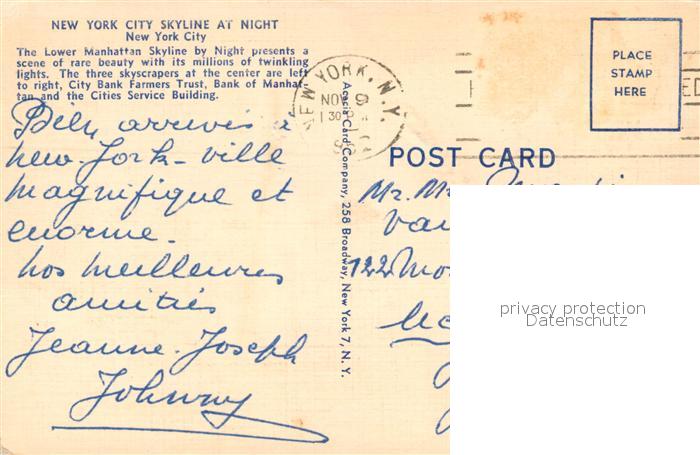 NEW YORK CITY SKYLINE AT NIGHT
New York City
The Lower Manhattan Skyline by Night presents a
scene of rare beauty with its millions of twinkling
lights. The three skyscrapers at the center are left
to right, City Bank Farmers Trust, Bank of Manhat-
tan and the Cities Service Building.
Bien arrivés à
new-York-ville
magnifique et
enorme.
nos meilleures
amitiés
Jeanne-Joseph
Johnny
Acacia Card Company, 258 Broadway, New York 7, N. Y.
NEW YORK, N.Y.
NOV 9
PLACE
STAMP
HERE
POST CARD
Mr. M
Va
122 Mo
privacy protection
Datenschutz